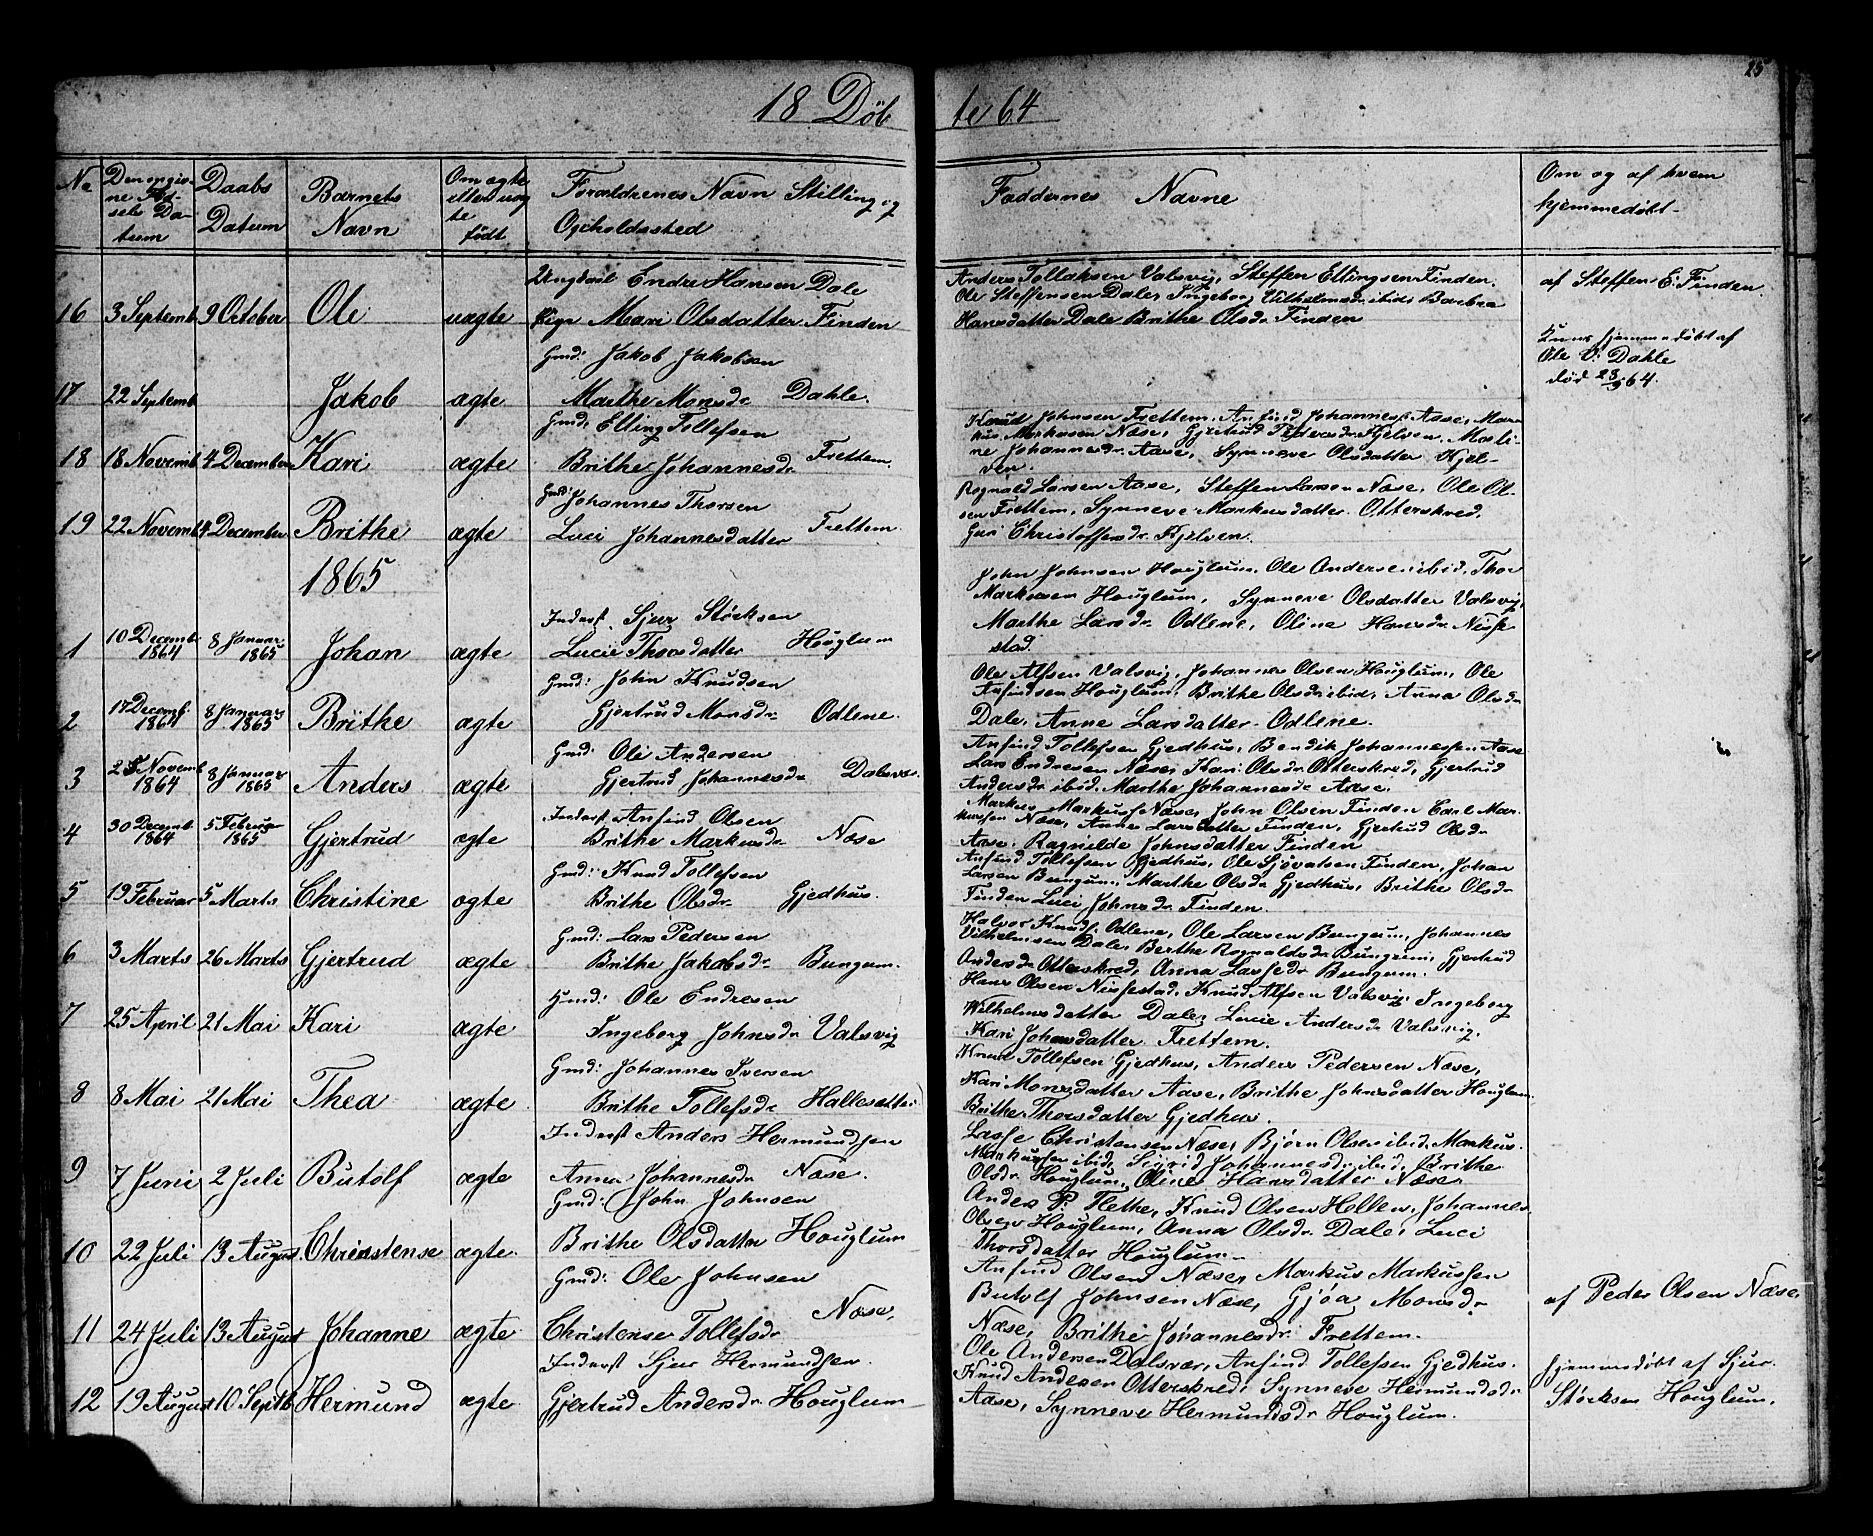 25
18 Døb te 64
No
Den opgiv-
ne Fød-
sels Da-
tum
Daabs
Datum
Barnets
Navn
Om ægte
eller uæg
te
født
Forældrenes Navn Stilling og
Opholdssted
Faddernes Navne
Om og af hvem
hjemmedøbt
16 3 Septemb 9 October Ole uægte
Ungkarl Endre Hansen Dale
Pige Mari Olsdatter Finden
Anders Tollaksen Valsvig, Steffen Ellingsen Finden.
Ole Steffensen Dale, Ingeborg Vilhelmsdr ibid, Barbra
Hansdatter Dale Brithe Olsdr Finden
af Steffen E. Finden.
17 22 Septemb Jakob ægte
Gmd: Jakob Jakobsen
Marthe Monsdr Dahle.
Kuns hjemmedøbt af
Ole V. Dahle
død 28/9 64.
18 18 Novemb 4 December Kari ægte
Gmd: Elling Tollefsen
Brithe Johannesdr Frettem.
Knud Johnsen Frettem, Anfind Johanness. Aase, Mar-
kus Markusen Næse, Gjertrud Pedersdr Kjelven, Marti-
ne Johannesdr Aase, Synneve Olsdatter Kjel-
ven.
19 22 Novemb 4 December Brithe ægte
Gmd: Johannes Thorsen
Luci Johannesdatter Frettem.
Rognald Larsen Aase, Steffen Larsen Næse, Ole Ol-
sen Frettem, Synneve Markusdatter Otterskred,
Guri Christoffersdr Kjelven.
1865
1 10 Decemb 1864 8 Januar 1865 Johan ægte
Inderst Sjur Størksen
Lucie Thorsdatter Houglum
John Johnsen Houglum, Ole Andersen ibid, Thor
Markusen Houglum, Synneve Olsdatter Valsvig,
Marthe Larsdr Odlene, Oline Hansdr Nisse-
stad.
2 17 Decemb. 1864 8 Januar 1865 Brithe ægte
Gmd: John Knudsen
Gjertrud Monsdr Odlene.
Ole Alfsen Valsvig, Johannes Olsen Houglum, Ole
Anfindsen Houglum, Brithe Olsdr ibid, Anna Olsdr
Dale, Anne Larsdatter Odlene.
3 25 Novemb 1864 8 Januar 1865 Anders ægte
Gmd: Ole Andersen
Gjertrud Johannesdr Dalsvær.
Anfind Tollefsen Gjedhus, Bendik Johannessen Aase
Lars Endresen Næse, Kari Olsdr Otterskred, Gjertrud
Andersdr ibid, Marthe Johannesdr Aase.
4 30 Decemb 1864 5 Februar 1865 Gjertrud ægte
Inderst Anfind Olsen
Brithe Markusdr Næse
Markus Markuss Næse, John Olsen Finden Erik Mar-
kussen Næse, Anne Larsdatter Finden, Gjertrud Olsdr
Aase, Ragnilde Johnsdatter Finden
5 19 Februar 5 Marts Christine ægte
Gmd: Knud Tollefsen
Brithe Olsdr Gjedhus.
Anfind Tollefsen Gjedhus, Ole Sjovatsen Finden, Johan
Larsen Bungum, Marthe Olsdr Gjedhus, Brithe Olsdr
Finden Luci Johnsdr Finden.
6 3 Marts 26 Marts Gjertrud ægte
Gmd: Lars Pedersen
Brithe Jakobsdr Bungum.
Halvor Knuds. Odlene, Ole Larsen Bungum, Johannes
Vilhelmsen Dale, Berthe Rognaldsdr Bungum, Gjertrud
Andersdr Otterskred, Anna Lassedr Bungum.
7 25 April 21 Mai Kari ægte
Gmd: Ole Endresen
Ingeborg Johnsdr Valsvig
Hans Olsen Nissestad, Knud Alfsen Valsvig, Ingeborg
Wilhelmsdatter Dale, Lucie Andersdr Valsvig,
Kari Johnsdatter Frettem.
8 8 Mai 21 Mai Thea ægte
Gmd: Johannes Iversen
Brithe Tollefsdr Hallesætter
Knud Tollefsen Gjedhus, Anders Pedersen Næse,
Kari Monsdatter Aase, Brithe Johnsdatter Houglum
Brithe Thorsdatter Gjedhus.
9 7 Juni 2 Juli Butolf ægte
Inderst Anders Hermundsen
Anna Johannesdr Næse.
Lasse Christensen Næse, Bjørn Olsen ibid, Markus
Markussen ibid, Sigrid Johannesdr ibid, Brithe
Olsdr Houglum, Oline Hansdatter Næse.
10 22 Juli 13 August Christense ægte.
Gmd: John Johnsen
Brithe Olsdatter Houglum
Anders P. Flethe, Knud Olsen Hellen, Johannes
Olsen Houglum, Anna Olsdr Dale, Luci
Thorsdatter Houglum.
11 24 Juli 13 August Johanne ægte.
Gmd: Ole Johnsen
Christense Tollefsdr Næse,
Anfind Olsen Næse, Markus Markussen
Butolf Johnsen Næse, Gjøa Monsdr
Næse, Brithe Johannesdr Frettem.
af Peder Olsen Næse
12 19 August 10 Septb Hermund ægte.
Inderst Sjur Hermundsen.
Gjertrud Andersdr Houglum
Ole Andersen Dalsvær, Anfind Tollefsen Gjedhus.
Knud Andersen Otterskred, Synneve Hermundsdr
Aase, Synneve Hermundsdr Houglum.
hjemmedøbt af Sjur
Størksen Houglum.